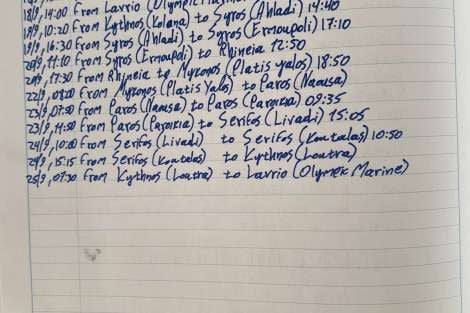 18/9, 14:00 From Lavrio (Olympic
18/9, 10:20 From Kythnos (Kolona) to Syros (Ahladi) 14:40
19/9, 16:30 From Syros (Ahladi) to Syros (Ermoupoli) 17:10
20/9, 11:10 From Syros (Ermoupoli) to Rhineia 12:50
20/9, 17:30 From Rhineia to Mykonos (Platis yalos) 18:50
22/9, 08:00 From Mykonos (Platis Yalos) to Paros (Naousa)
23/9, 07:50 From Paros (Naousa) to Paros (Paroikia) 09:35
23/9, 11:50 From Paros (Paroikia) to Serifos (Livadi) 15:05
24/9, 10:00 From Serifos (Livadi) to Serifos (Koutalas) 10:50
24/9, 15:15 From Serifos (Koutalas) to Kythnos (Loutra)
25/9, 07:30 From Kythnos (Loutra) to Lavrio (Olympic Marine)